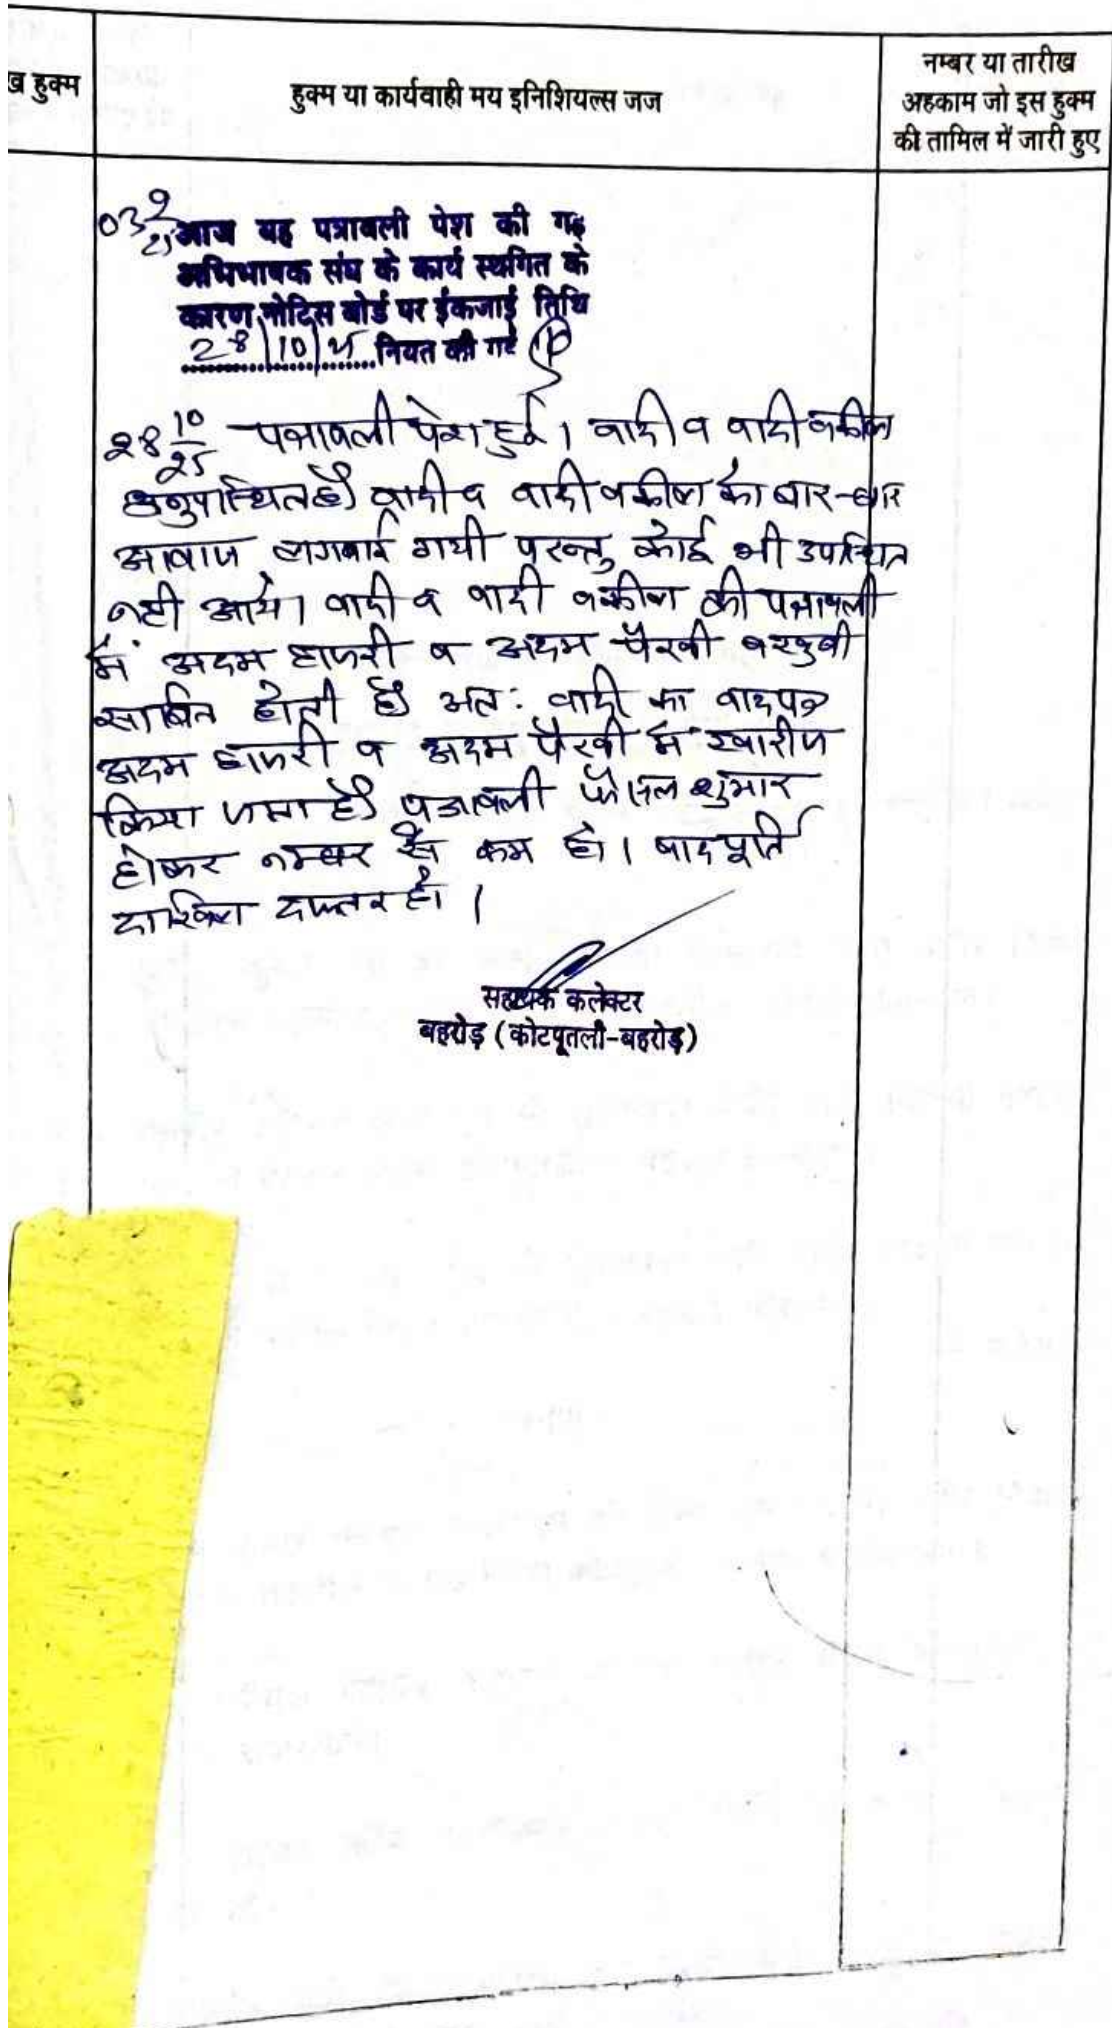 ख हुक्म
हुक्म या कार्यवाही मय इनिशियल्स जज
नम्बर या तारीख
अहकाम जो इस हुक्म
की तामिल में जारी हुए
03 9/25
आज यह पत्रावली पेश की गई
अभिभाषक संघ के कार्य स्थगित के
कारण नोटिस बोर्ड पर ईकजाई तिथि
28/10/25 नियत की गई
28 10/25 पत्रावली पेश हुई। वादी व वादी वकील
अनुपस्थित है वादी व वादी वकील को बार-बार
आवाज लगवाई गयी परन्तु कोई भी उपस्थित
नही आये। वादी व वादी वकील की पत्रावली
में अदम हाजरी व अदम पैरवी बखुबी
साबित होती है अतः वादी का वादपत्र
अदम हाजरी व अदम पैरवी में खारीज
किया जाता है पत्रावली फैसल शुमार
होकर नम्बर से कम हो। बादपूर्ति
दाखिल दफ्तर हो।
सहायक कलेक्टर
बहरोड़ (कोटपूतली-बहरोड़)